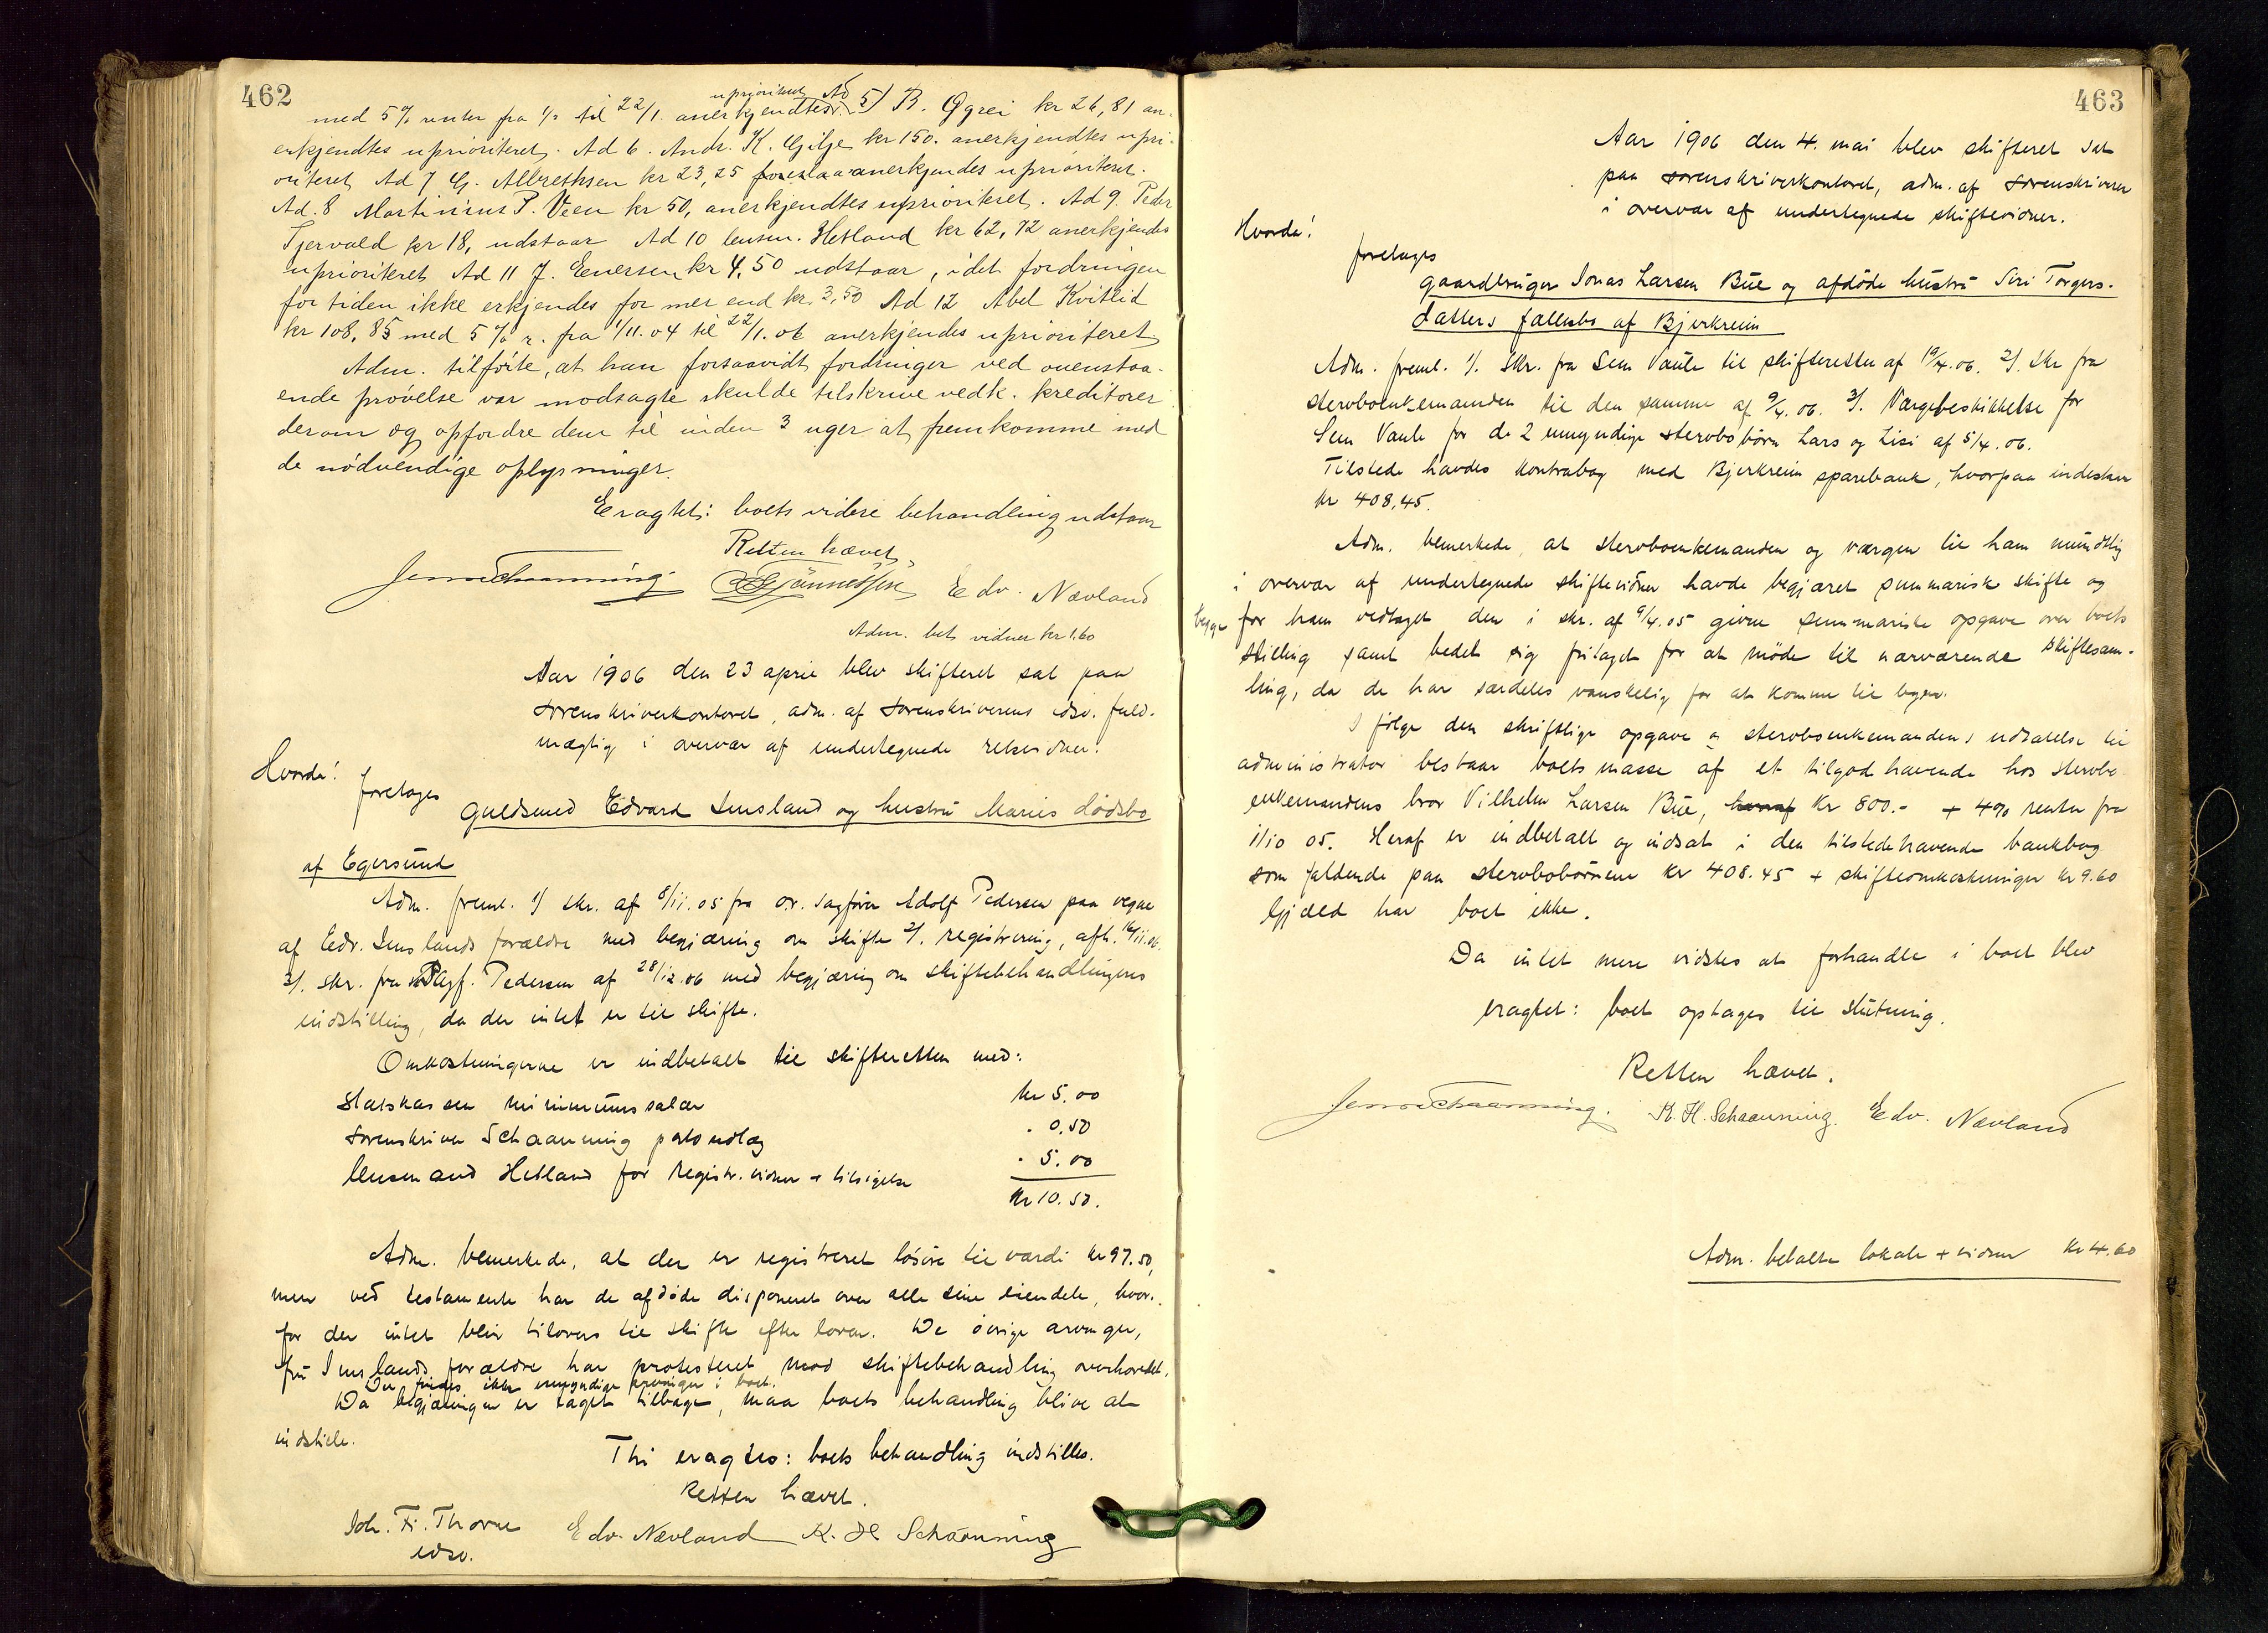 462
med 5% renter fra til 22/1. anerkjendtes uprioritert Ad 5) B. Øgrei kr 26,81 an-
erkjendtes uprioriteret. Ad 6. Andr. K. Gilje kr 150. anerkjendtes upri-
oriteret Ad 7 G. Albrethsen kr 23,25 anerkjendes uprioriteret.
Ad. 8 Martinius P. Veen kr 50, anerkjendtes uprioriteret. Ad 9. Peder
Tjervald kr 18, udstaar Ad 10 lensm. Hetland kr 62,72 anerkjendes
uprioriteret Ad 11 J. Evensen kr 4,50 udstaar, idet fordringen
for tiden ikke erkjendes for mer end kr. 3,50 Ad 12 Abel Kvitlid
kr 108,85 med 5% r. fra 1/11.04 til 22/1.06 anerkjendes uprioriteret
Adm. tilførte, at han forsaavidt fordringer ved ovenstaa-
ende prøvelse var modsagte skulde tilskrive vedk. kreditorer
derom og opfordre dem til inden 3 uger at fremkomme med
de nødvendige oplysninger.
Eragtet: boets videre behandling udstaar
Retten hævet
Schaanning Edv. Nævland
Adm. bet. vidner kr 1.60
Aar 1906 den 23 april blev skifteret sat paa
sorenskriverkontoret, adm. af sorenskriverens edsv. fuld-
mægtig i overvær af undertegnede retsvidner.
Hvorda!
foretoges
guldsmed Edvard Imsland og hustru Maries dødsbo
af Egersund
Adm. freml. 1) skr. af 8/11.05 fra or. sagfører Adolf Pedersen paa vegne
af Edv. Imslands forældre med begjæring om skifte 2). registrering, afh. 16/11.06.
3). skr. fra Pedersen af 28/12.06 med begjæring om skiftebehandlingens
indstilling, da der intet er til skifte.
Omkostningerne er indbetalt til skifteretten med:
Statskassen minimumssalær kr 5.00
sorenskriver Schaanning portoudlæg - 0.50
lensmand Hetland for registr. vidner + tilsigelse - 5.00
kr 10.50.
Adm. bemerkede, at der er registreret løsøre til værdi kr 97.50,
men ved testamente har de afdøde disponeret over alle sine eiendele, hvor-
for der intet blir tilovers til skifte efter loven. De øvrige arvinger,
fru Imslands forældre har protesteret mod skiftebehandling overhovedet.
Der findes ikke umyndige arvinger i boet.
Da begjæringen er taget tilbage, maa boets behandling blive at
indstille.
Thi eragtes: boets behandling indstilles.
Retten hævet.
Joh. Fr. Thorne Edv. Nævland K. H Schaanning
edsv.
463
Aar 1906 den 4. mai blev skifteret sat
paa sorenskriverkontoret, adm. af sorenskriveren
i overvær af undertegnede skiftevidner.
Hvorda!
foretoges
gaardbruger Jonas Larsen Bue og afdøde hustru Siri Torgers-
datters fællesbo af Bjerkreim
Adm. freml. 1). Skr. fra Sem Vaule til skifteretten af 19/4.06. 2). skr fra
sterboenkemanden til den samme af 9/4.06. 3). Værgebeskikkelse for
Sem Vaule for de 2 umyndige sterbobørn Lars og Lisi af 5/4.06.
Tilstede havdes kontrabog med Bjerkreim sparebank, hvorpaa indestaar
kr 408.45.
Adm. bemerkede, at sterboenkemanden og værgen til ham mundtlig
i overvær af undertegnede skiftevidner havde begjæret summarisk skifte og
begge for ham vedtaget den i skr. af 9/4.05 givne summariske opgave over boets
stilling samt bedet sig fritaget for at møde til nærværende skiftesam-
ling, da de har særdeles vanskelig for at komme til byen.
I følge den skriftlige opgave og sterboenkemandens udtalelse til
administrator bestaar boets masse af et tilgodehavende hos sterbo
enkemandens bror Vilhelm Larsen Bue, hvoraf kr 800.- + 4% renter fra
1/10 05. Heraf er indbetalt og indsat i den tilstedehavende bankbog
som faldende paa sterbobørnene kr 408.45 + skifteomkostninger kr 9.60
Gjæld har boet ikke.
Da intet mere vidstes at forhandle i boet blev
eragtet: boet optages til slutning.
Retten hævet.
Schaanning. K. H. Schaanning. Edv. Nævland
Adm. betalte lokale + vidner kr 4.60